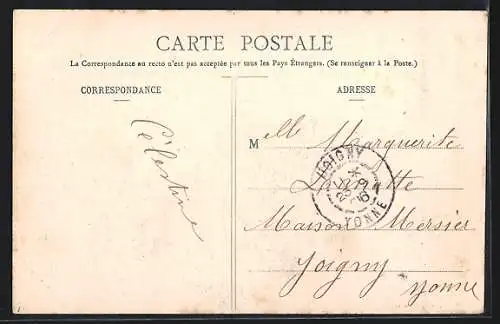 CARTE POSTALE
La Correspondance au recto n'est pas acceptée par tous les Pays Étrangers. (Se renseigner à la Poste.)
CORRESPONDANCE
ADRESSE
Célestine
Melle Marguerite
Maison Mersier
Joigny
Yonne
JOIGNY
YONNE